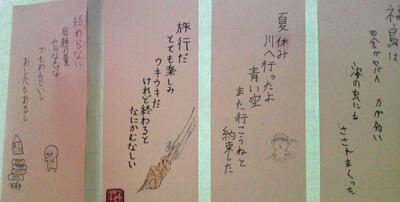 福島は
カが多い
の虫にも
さされまくった
夏休み
川へ行ったよ
青い空
また行こうねと
約束した
旅行だ
とても楽しみ
ウキウキだ
けれど終わると
なにかむなしい
終わらない
宿題の量
やらなきゃな
でもめんどいし
あしたもあるし